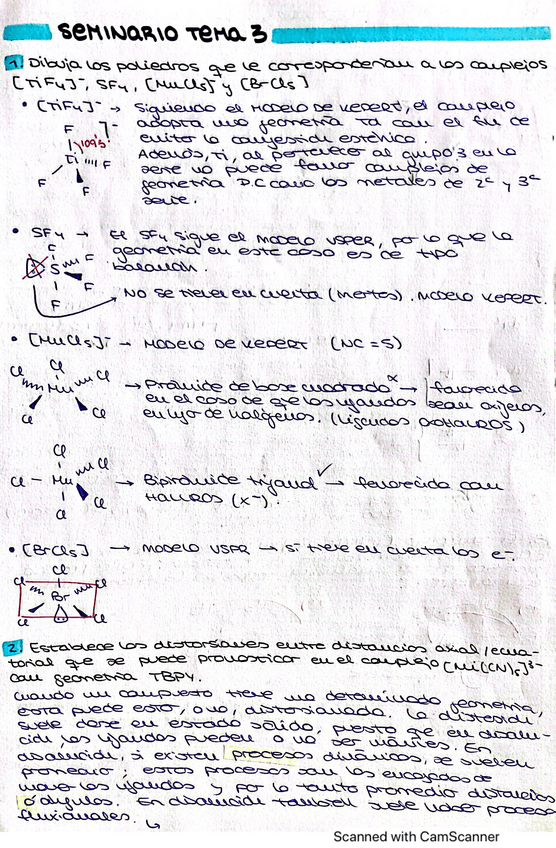 SEMINARIO TEMA 3
1. Dibuja los poliedros que le corresponderían a los complejos
[TiF4]⁻, SF4, [MnCl5]⁻ y [BrCl5]
• [TiF4]⁻ → Siguiendo el MODELO DE KEPERT, el complejo
adopta una geometría Td con el fin de
evitar la congestión estérica.
Además, Ti, al pertenecer al grupo 3 en la
serie no puede formar complejos de
geometría D.C como los metales de 2ª y 3ª
serie.
F
109'5
Ti F
F F
• SF4 → El SF4 sigue el MODELO VSPER, por lo que la
geometría en este caso es de tipo
balancín.
F
S F
F
F
NO SE TIENEN EN CUENTA (inertes). MODELO KEPERT.
• [MnCl5]⁻ → MODELO DE KEPERT (NC = 5)
Cl
Cl Mn Cl
Cl Cl
→ Pirámide de base cuadrada x → favorecida
en el caso de que los ligandos sean oxígenos,
en lugar de halógenos. (Ligandos OXOHALUROS)
Cl
Cl
Cl – Mn
Cl
Cl
→ Bipirámide trigonal ✓ → favorecida con
HALUROS (X⁻).
• [BrCl5] → MODELO VSPR → sí tiene en cuenta los e⁻.
Cl
Cl Cl
Br
Cl Cl
2. Establece las distorsiones entre distancias axial/ecua-
torial que se puede pronosticar en el complejo [Ni(CN)5]³⁻
con geometría TBPY.
Cuando un compuesto tiene una determinada geometría,
esta puede estar, o no, distorsionada. La distorsión
suele darse en estado sólido, puesto que en disolu-
ción, los ligandos pueden o no ser inertes. En
disolución, si existen procesos dinámicos, se suelen
promediar; estos procesos son los encargados de
mover los ligandos y por lo tanto promediar distancias
o ángulos. En disolución también suele haber procesos
fluxionales.
Scanned with CamScanner